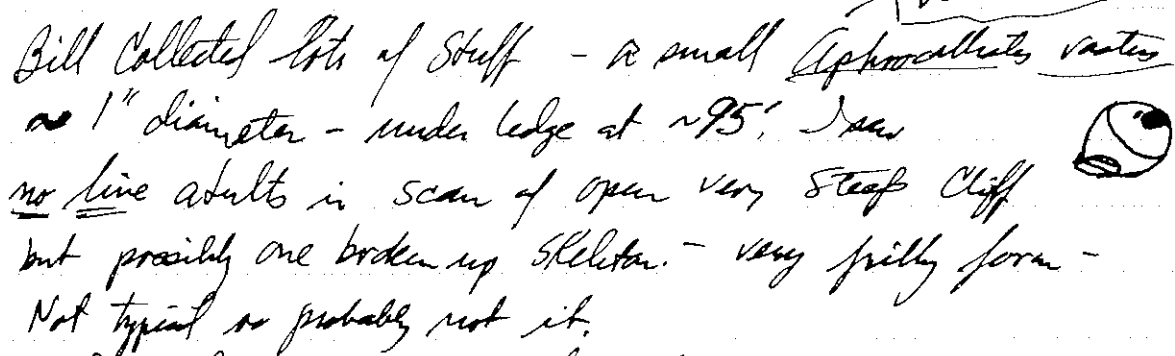 Bill Collected lots of Stuff - a small Aphrocallistes vastus
~ 1" diameter - under ledge at ~95'. I saw
no live adults in scan of open very Steep Cliff
but possibly one broken up Skeleton. - very frilly form -
Not typical so probably not it.